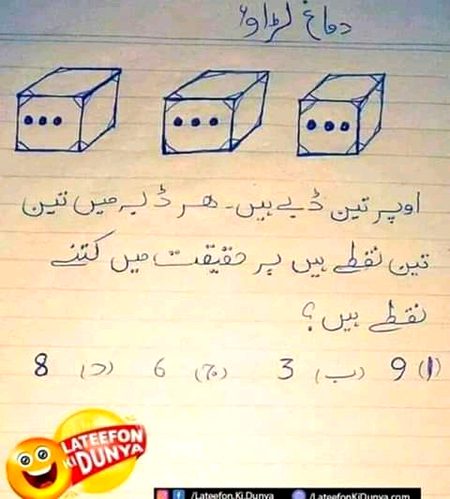 دماغ لڑاؤ؟
اوپر تین ڈبے ہیں۔ ھر ڈبہ میں تین
تین نقطے ہیں پر حقیقت میں کتنے
نقطے ہیں؟
(ا) 9 (ب) 3 (ج) 6 (د) 8
LATEEFON
KI DUNYA
/Lateefon.Ki.Dunya
/LateefonKiDunya.com